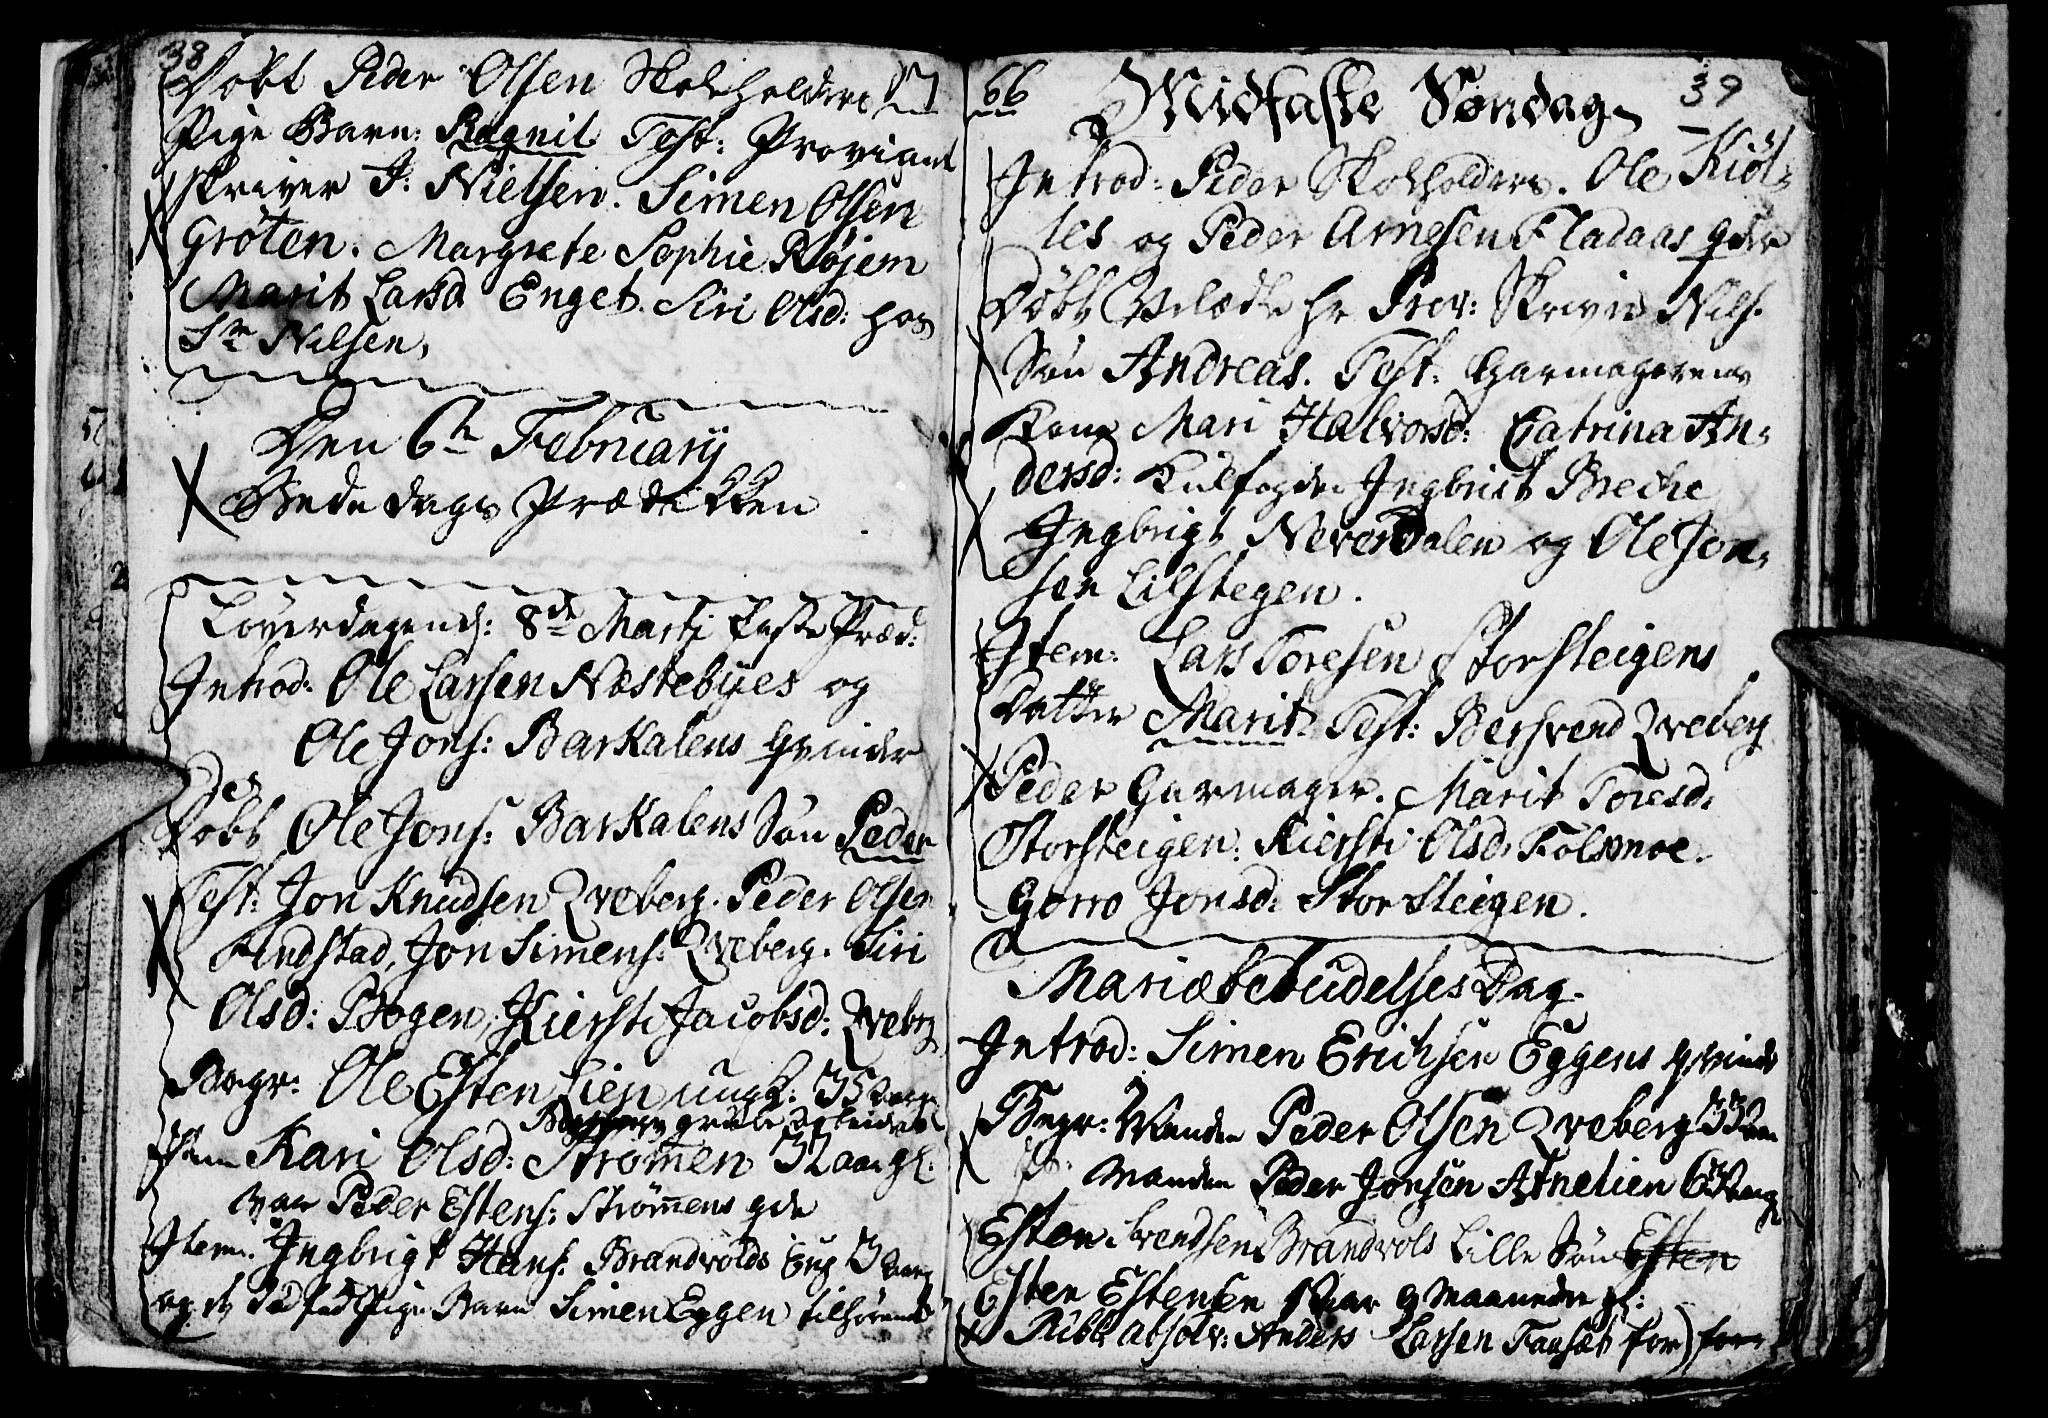 38
Døbt Peder Olsen Skoleholders 17
Pige Barn: Ragnil Test: Proviant
skriver J: Nielsen. Simen Olsen
Grøten. Margrete Sophie Røjem
Marit Larsd Enget. Siri Olsd: hos
Sr Nilsen,
Den 6te February
Bededags Prædikken
Løverdagen d: 8de Martj faste Præd:
Introd: Ole Larsen Næstebyes og
Ole Jons: Barkalens Qvinder
Døbt Ole Jons: Barkalens Søn Peder
Test: Jon Knudsen Qveberg. Peder Olsen
Lindstad, Jon Simens: Qveberg. Siri
Olsd: Bogen, Kiersti Jacobsd: Qveberg
Begr: Ole Esten Lien ungk. 35 aar
grube arbeider
Item Kari Olsd: Strømen 32 aar gl:
var Peder Estens: Strømens qde
Item. Ingbrigt Hans: Brandvolds 3 aar
og et død fød Pige Barn Simen Eggen tilhørende
66 Midfaste Søndag 39
Introd: Peder Skoleholders. Ole Kiøl-
les og Peder Arnesen Fladaas qder
Døbt Velædle Hr Prov: Skriver Nils:
Søn Andreas. Test: Garmagerens
Kone Mari Halvorsd: Catrina An-
dersd: Kulfogden Ingbrict Brecke
Ingbrigt Neverdalen og Ole Jon-
sen Lilstegen.
Item: Lars Toresen Storsteigens
Datter Marit Test: Bersvend Qveberg
Peder Garmager. Marit Toresd.
Storsteigen: Kiersti Olsd. Folsmoe.
Gorro Jonsd: Storsteigen.
Mariæ bebudelses Dag.
Introd: Simen Erichsen Eggens Qvinde
Begr: Manden Peder Olsen Qveberg 33 aar
Manden Peder Jonsen Arnelien
Esten Svendsen Brandvols Lille Søn Esten
Esten Estensen aar 9 Maaneder gl:
Publ: absolv: Anders Larsen Faaset for) for